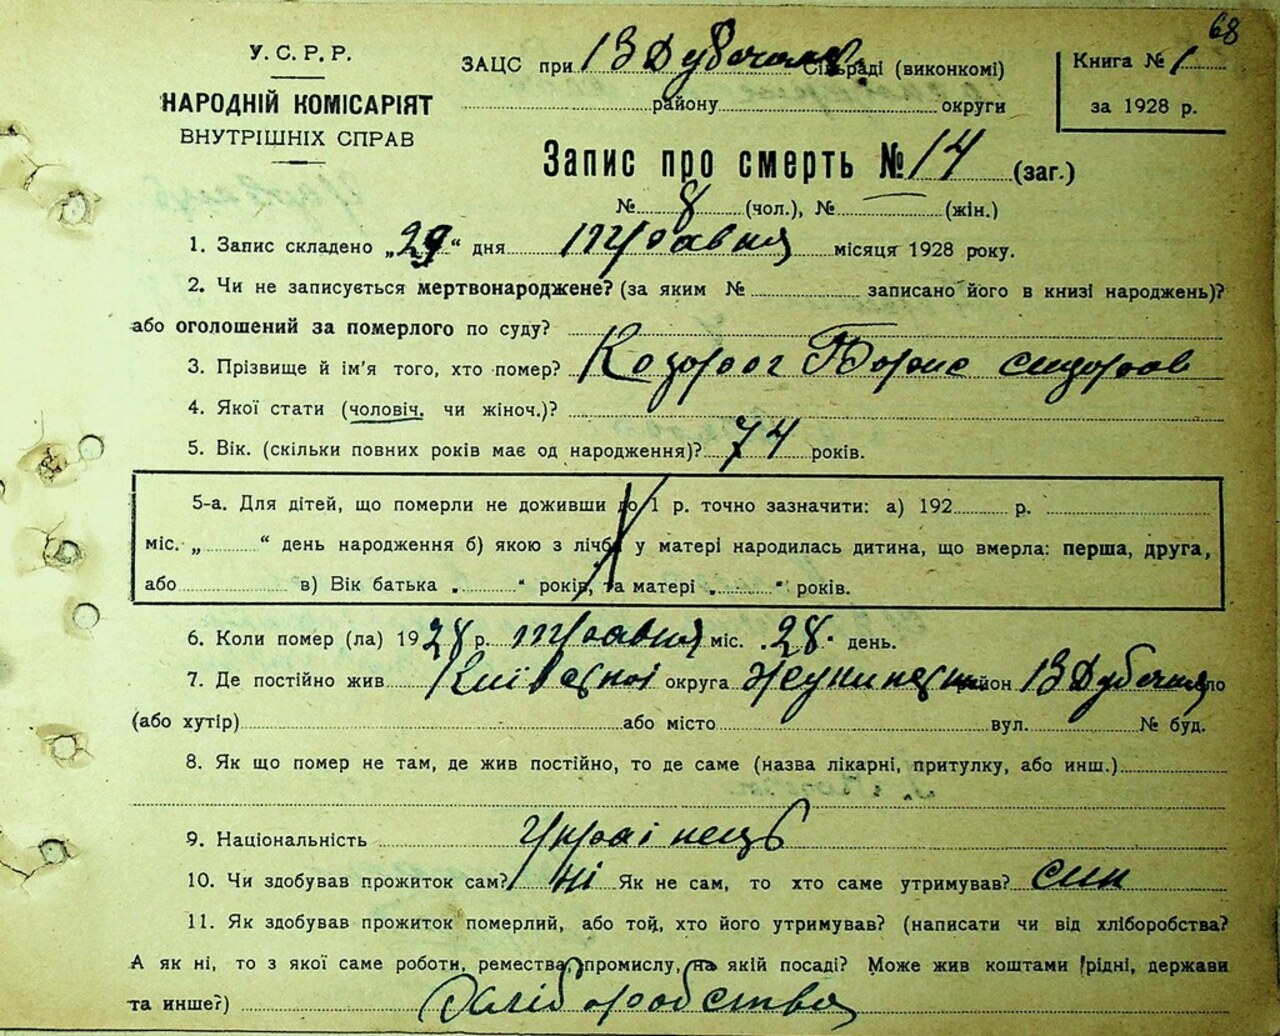 68
У. С. Р. Р.
НАРОДНІЙ КОМІСАРІЯТ
ВНУТРІШНІХ СПРАВ
ЗАЦС при ВДубечанс. Сільраді (виконкомі)
району округи
Книга № 1
за 1928 р.
Запис про смерть № 14 (заг.)
№ 8 (чол.), № — (жін.)
1. Запис складено „29“ дня травня місяця 1928 року.
2. Чи не записується мертвонароджене? (за яким № записано його в книзі народжень)?
або оголошений за померлого по суду?
3. Прізвище й ім'я того, хто помер? Козорог Борис сидоров
4. Якої стати (чоловіч. чи жіноч.)?
5. Вік. (скільки повних років має од народження)? 74 років.
5-а. Для дітей, що померли не доживши до 1 р. точно зазначити: а) 192 р.
міс. „ “ день народження б) якою з лічби у матері народилась дитина, що вмерла: перша, друга,
або в) Вік батька „ “ років, та матері „ “ років.
6. Коли помер (ла) 1928 р. травня міс. 28 день.
7. Де постійно жив Київської округа район ВДубечня село
(або хутір) або місто вул. № буд.
8. Як що помер не там, де жив постійно, то де саме (назва лікарні, притулку, або инш.)
9. Національність Українець
10. Чи здобував прожиток сам? ні Як не сам, то хто саме утримував? син
11. Як здобував прожиток померлий, або той, хто його утримував? (написати чи від хліборобства?
А як ні, то з якої саме роботи, ремества, промислу, на якій посаді? Може жив коштами рідні, держави
та инше?) Хліборобства